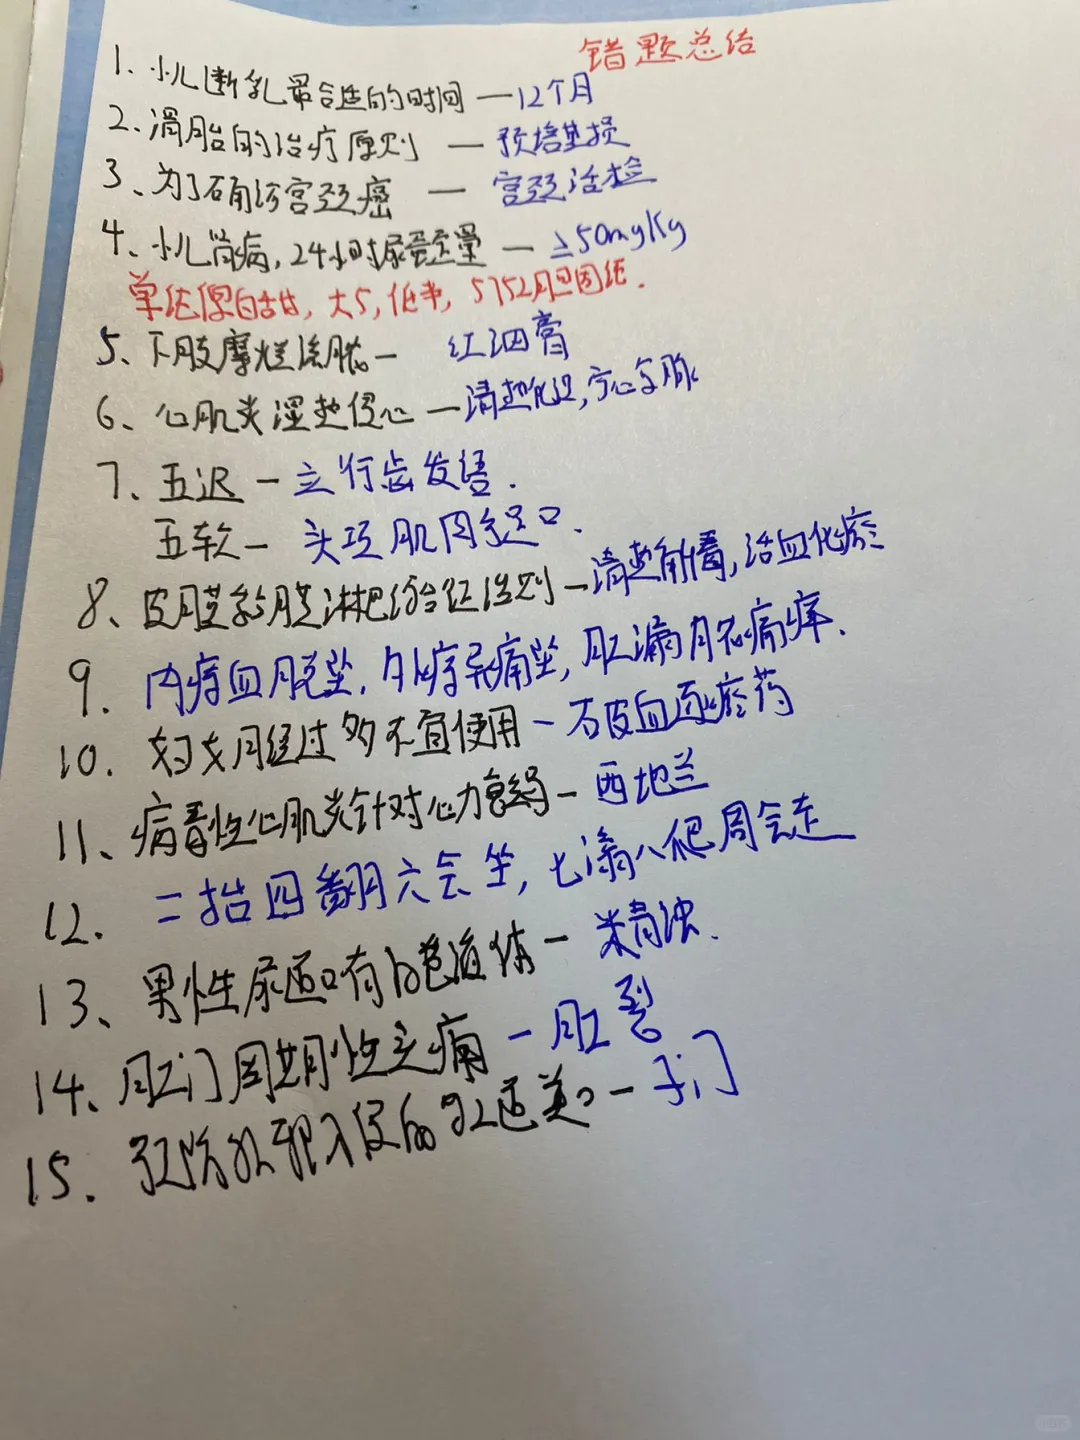 错题总结
1、小儿断乳最合适的时间 — 12个月
2、滑胎的治疗原则 — 预培其损
3、为了确诊宫颈癌 — 宫颈活检
4、小儿肾病,24小时尿蛋定量 — ≥50mg/Kg
单纯原白 大5,低 5752胆固纯.
5、下肢糜烂流脓 — 红油膏
6、心肌炎湿热侵心 — 清热化湿,宁心复脉
7、五迟 — 立行齿发语.
五软 — 头项肌肉手足口.
8、皮肤黏膜淋巴综合征法则 — 清热解毒,活血化瘀
9. 内痔血脱坠,外痔异痛坠,肛漏脓痛痒.
10. 妇女月经过多不宜使用 — 破血逐瘀药
11、病毒性心肌炎针对心力衰竭 — 西地兰
12. 二抬四翻六会坐,七滚八爬周会走
13、男性尿道口有白色液体 — 精浊.
14、肛门周期性疼痛 — 肛裂
15. 预防外邪入侵的 关口 — 子门